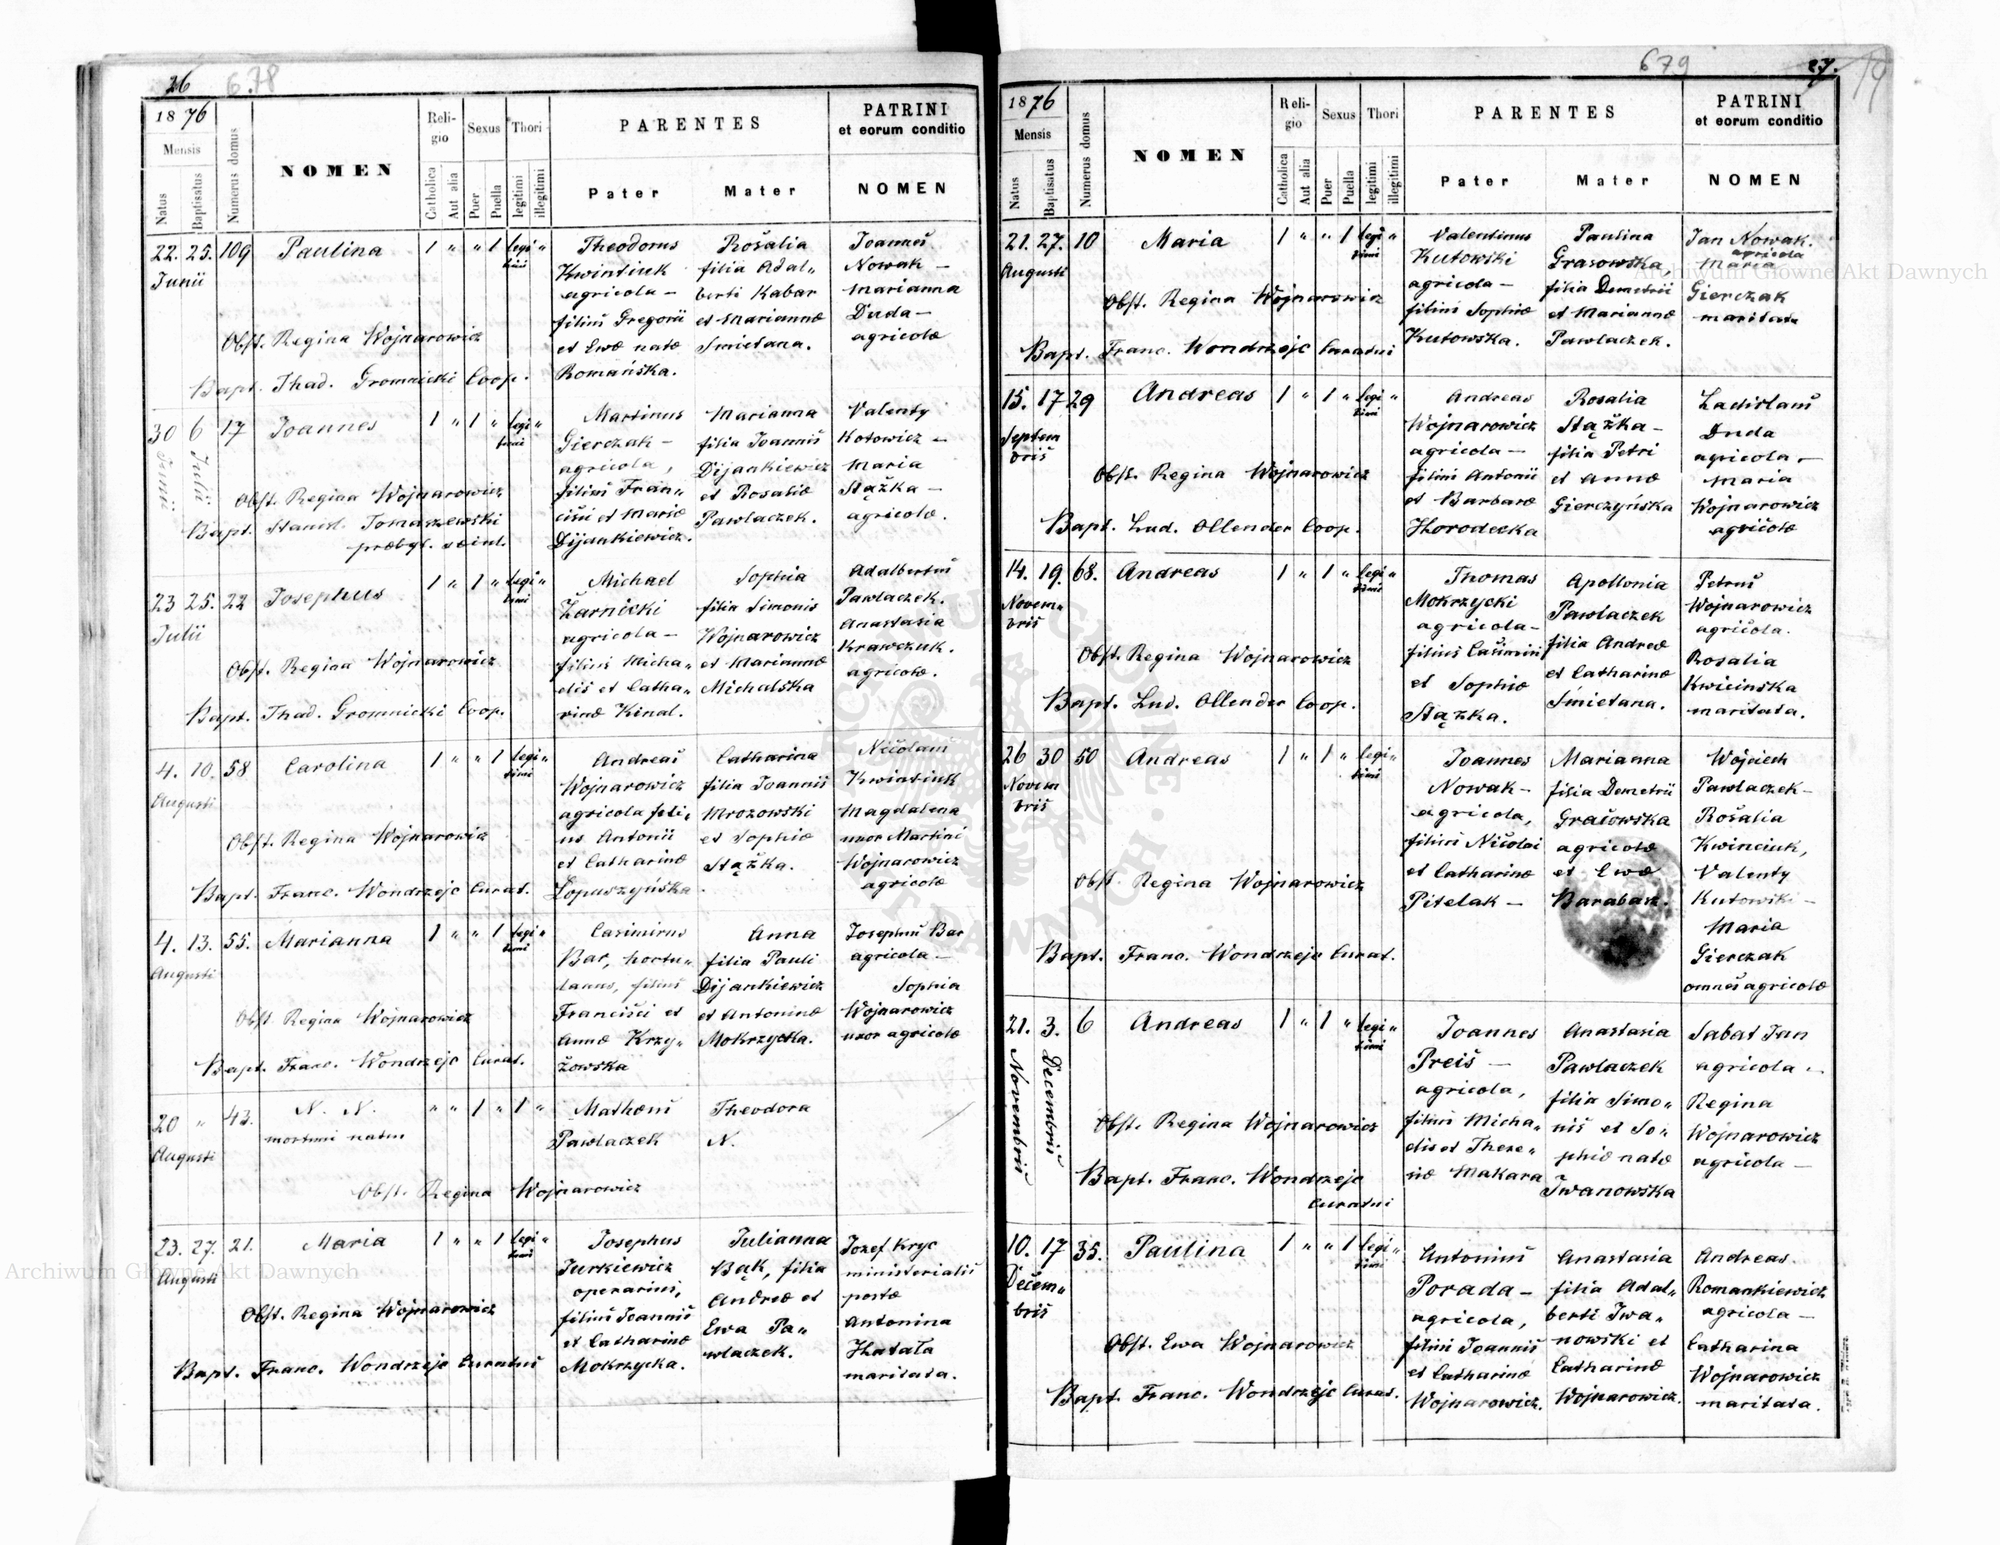 26 678
1876
Mensis
Natus
Baptisatus
Numerus domus
NOMEN
Religio
Catholica
Aut alia
Sexus
Puer
Puella
Thori
legitimi
illegitimi
PARENTES
Pater
Mater
PATRINI
et eorum conditio
NOMEN
22. 25. 109 Paulina 1 " " 1 legitimi "
Junii
Theodorus
Kwintiuk
agricola —
filius Gregorii
et Ewæ natæ
Romańska.
Rosalia
filia Adal„
berti Kabar
et Mariannæ
Smietana.
Joannes
Nowak —
Marianna
Duda —
agricolæ
Obst. Regina Wojnarowicz
Bapt. Thad. Gromnicki Coop.
30 6 17 Joannes 1 " 1 " legitimi "
Junii Julii
Martinus
Gierczak —
agricola,
filius Fran„
cisci et Mariæ
Dijankiewicz.
Marianna
filia Joannis
Dijankiewicz
et Rosaliæ
Pawlaczek.
Valenty
Kotowicz —
Maria
Stążka —
agricolæ.
Obst. Regina Wojnarowicz
Bapt. Stanisl. Tomaszewski
23 25. 22 Josephus 1 " 1 " legitimi "
Julii
Michael
Żarnicki
agricola —
filius Micha„
elis et Catha„
rinæ Kinal.
Sophia
filia Simonis
Wojnarowicz
et Mariannæ
Michalska
Adalbertus
Pawlaczek.
Anastasia
Krawczuk.
agricolæ.
Obst. Regina Wojnarowicz
Bapt. Thad. Gromnicki Coop.
4. 10. 58 Carolina 1 " " 1 legitimi "
Augusti
Andreas
Wojnarowicz
agricola fili„
us Antonii
et Catharinæ
Łopuszyńska
Catharina
filia Joannis
Mrozowski
et Sophiæ
Stążka.
Nicolaus
Kwintiuk
Magdalena
uxor Martini
Wojnarowicz
agricolæ
Obst. Regina Wojnarowicz
Bapt. Franc. Wondrzejc Curat.
4. 13. 55. Marianna 1 " " 1 legitimi "
Augusti
Casimirus
Bar, hortu„
lanus, filius
Francisci et
Annæ Krzy„
żowska
Anna
filia Pauli
Dijankiewicz
et Antoninæ
Mokrzycka.
Josephus Bar
agricola —
Sophia
Wojnarowicz
uxor agricolæ
Obst. Regina Wojnarowicz
Bapt. Franc. Wondrzejc Curat.
20 " 43. N. N. " " 1 " 1 "
Augusti
mortuus natus
Mathæus
Pawlaczek
Theodora
N.
Obst. Regina Wojnarowicz
23. 27. 21. Maria 1 " " 1 legitimi "
Augusti
Josephus
Jurkiewicz
operarius,
filius Joannis
et Catharinæ
Mokrzycka.
Julianna
Bąk, filia
Andreæ et
Ewa Pa„
wlaczek.
Jozef Kryc
ministerialis
postæ
Antonina
Hatała
maritata.
Obst. Regina Wojnarowicz
Bapt. Franc. Wondrzejc Curatus
679 27.
1876
Mensis
Natus
Baptisatus
Numerus domus
NOMEN
Religio
Catholica
Aut alia
Sexus
Puer
Puella
Thori
legitimi
illegitimi
PARENTES
Pater
Mater
PATRINI
et eorum conditio
NOMEN
21. 27. 10 Maria 1 " " 1 legitimi "
Augusti
Valentinus
Kutowski
agricola —
filius Sophiæ
Kutowska.
Paulina
Grasowska,
filia Demetrii
et Mariannæ
Pawlaczek.
Jan Nowak.
agricola
Maria
Gierczak
maritata
Obst. Regina Wojnarowicz
Bapt. Franc. Wondrzejc Curatus
15. 17 29 Andreas 1 " 1 " legitimi "
Septembris
Andreas
Wojnarowicz
agricola —
filius Antonii
et Barbaræ
Horodecka
Rosalia
Stążka —
filia Petri
et Annæ
Gierczyńska
Ladislaus
Duda
agricola, —
Maria
Wojnarowicz
agricolæ
Obst. Regina Wojnarowicz
Bapt. Lud. Ollender Coop.
14. 19. 68. Andreas 1 " 1 " legitimi "
Novem„
bris
Thomas
Mokrzycki
agricola —
filius Casimiri
et Sophiæ
Stążka.
Apollonia
Pawlaczek
filia Andreæ
et Catharinæ
Śmietana.
Petrus
Wojnarowicz
agricola.
Rosalia
Kwicinska
maritata.
Obst. Regina Wojnarowicz
Bapt. Lud. Ollender Coop.
26 30 50 Andreas 1 " 1 " legitimi "
Novembris
Joannes
Nowak —
agricola,
filius Nicolai
et Catharinæ
Pitelak —
Marianna
filia Demetrii
Grasowska
agricolæ
et Ewæ
Barabasz.
Wojciech
Pawlaczek —
Rosalia
Kwinciuk,
Valenty
Kutowski —
Maria
Gierczak
omnes agricolæ
Obst. Regina Wojnarowicz
Bapt. Franc. Wondrzejc Curat.
21. 3. 6 Andreas 1 " 1 " legitimi "
Novembris Decembris
Joannes
Preis —
agricola,
filius Micha„
elis et There„
næ Makara
Anastasia
Pawlaczek
filia Simo„
nis et So„
phiæ natæ
Iwanowska
Sabat Jan
agricola —
Regina
Wojnarowicz
agricola —
Obst. Regina Wojnarowicz
Bapt. Franc. Wondrzejc
Curatus
10. 17 35. Paulina 1 " " 1 legitimi "
Decem„
bris
Antonius
Porada —
agricola,
filius Joannis
et Catharinæ
Wojnarowicz.
Anastasia
filia Adal„
berti Iwa„
nowski et
Catharinæ
Wojnarowicz.
Andreas
Romankiewicz
agricola —
Catharina
Wojnarowicz
maritata.
Obst. Ewa Wojnarowicz
Bapt. Franc. Wondrzejc Curat.
Archiwum Główne Akt Dawnych
Archiwum Główne Akt Dawnych